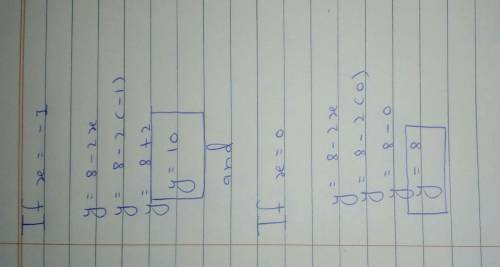 If x = -1
y = 8 - 2x
y = 8 - 2(-1)
y = 8 + 2
y = 10
and
If x = 0
y = 8 - 2x
y = 8 - 2(0)
y = 8 - 0
y = 8